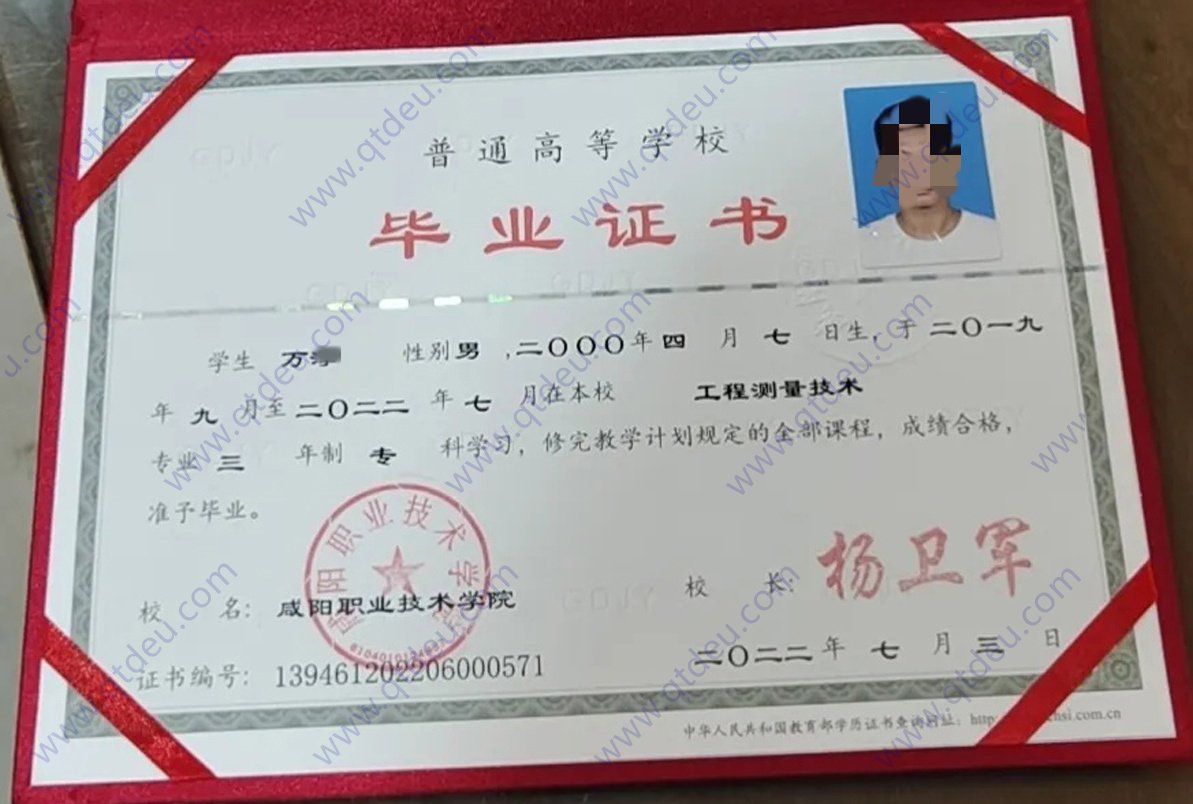 普通高等学校
毕业证书
学生 万 性别 男 ,二〇〇〇年 四 月 七 日生, 于 二〇一九
年 九 月至 二〇二二 年 七 月在本校 工程测量技术
专业 三 年制 专 科学习, 修完教学计划规定的全部课程, 成绩合格,
准予毕业。
咸阳职业技术学院
校 名: 咸阳职业技术学院
校 长: 杨卫军
证书编号: 139461202206000571
二〇二二 年 七 月 三 日
中华人民共和国教育部学历证书查询网址: hsi.com.cn
www.qtdeu.com